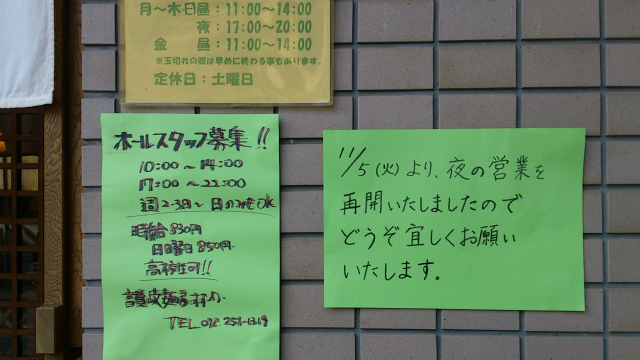 月～木・日 昼：11:00～14:00
夜：17:00～20:00
金 昼：11:00～14:00
※玉切れの際は早めに終わる事もあります。
定休日：土曜日
ホールスタッフ募集!!
10:00～14:00
17:00～22:00
週2-3日～ 日のみもOK
時給830円
日曜日850円
高校生可!!
讃岐麺
TEL
11/5(火)より、夜の営業を
再開いたしましたので
どうぞ宜しくお願い
いたします。